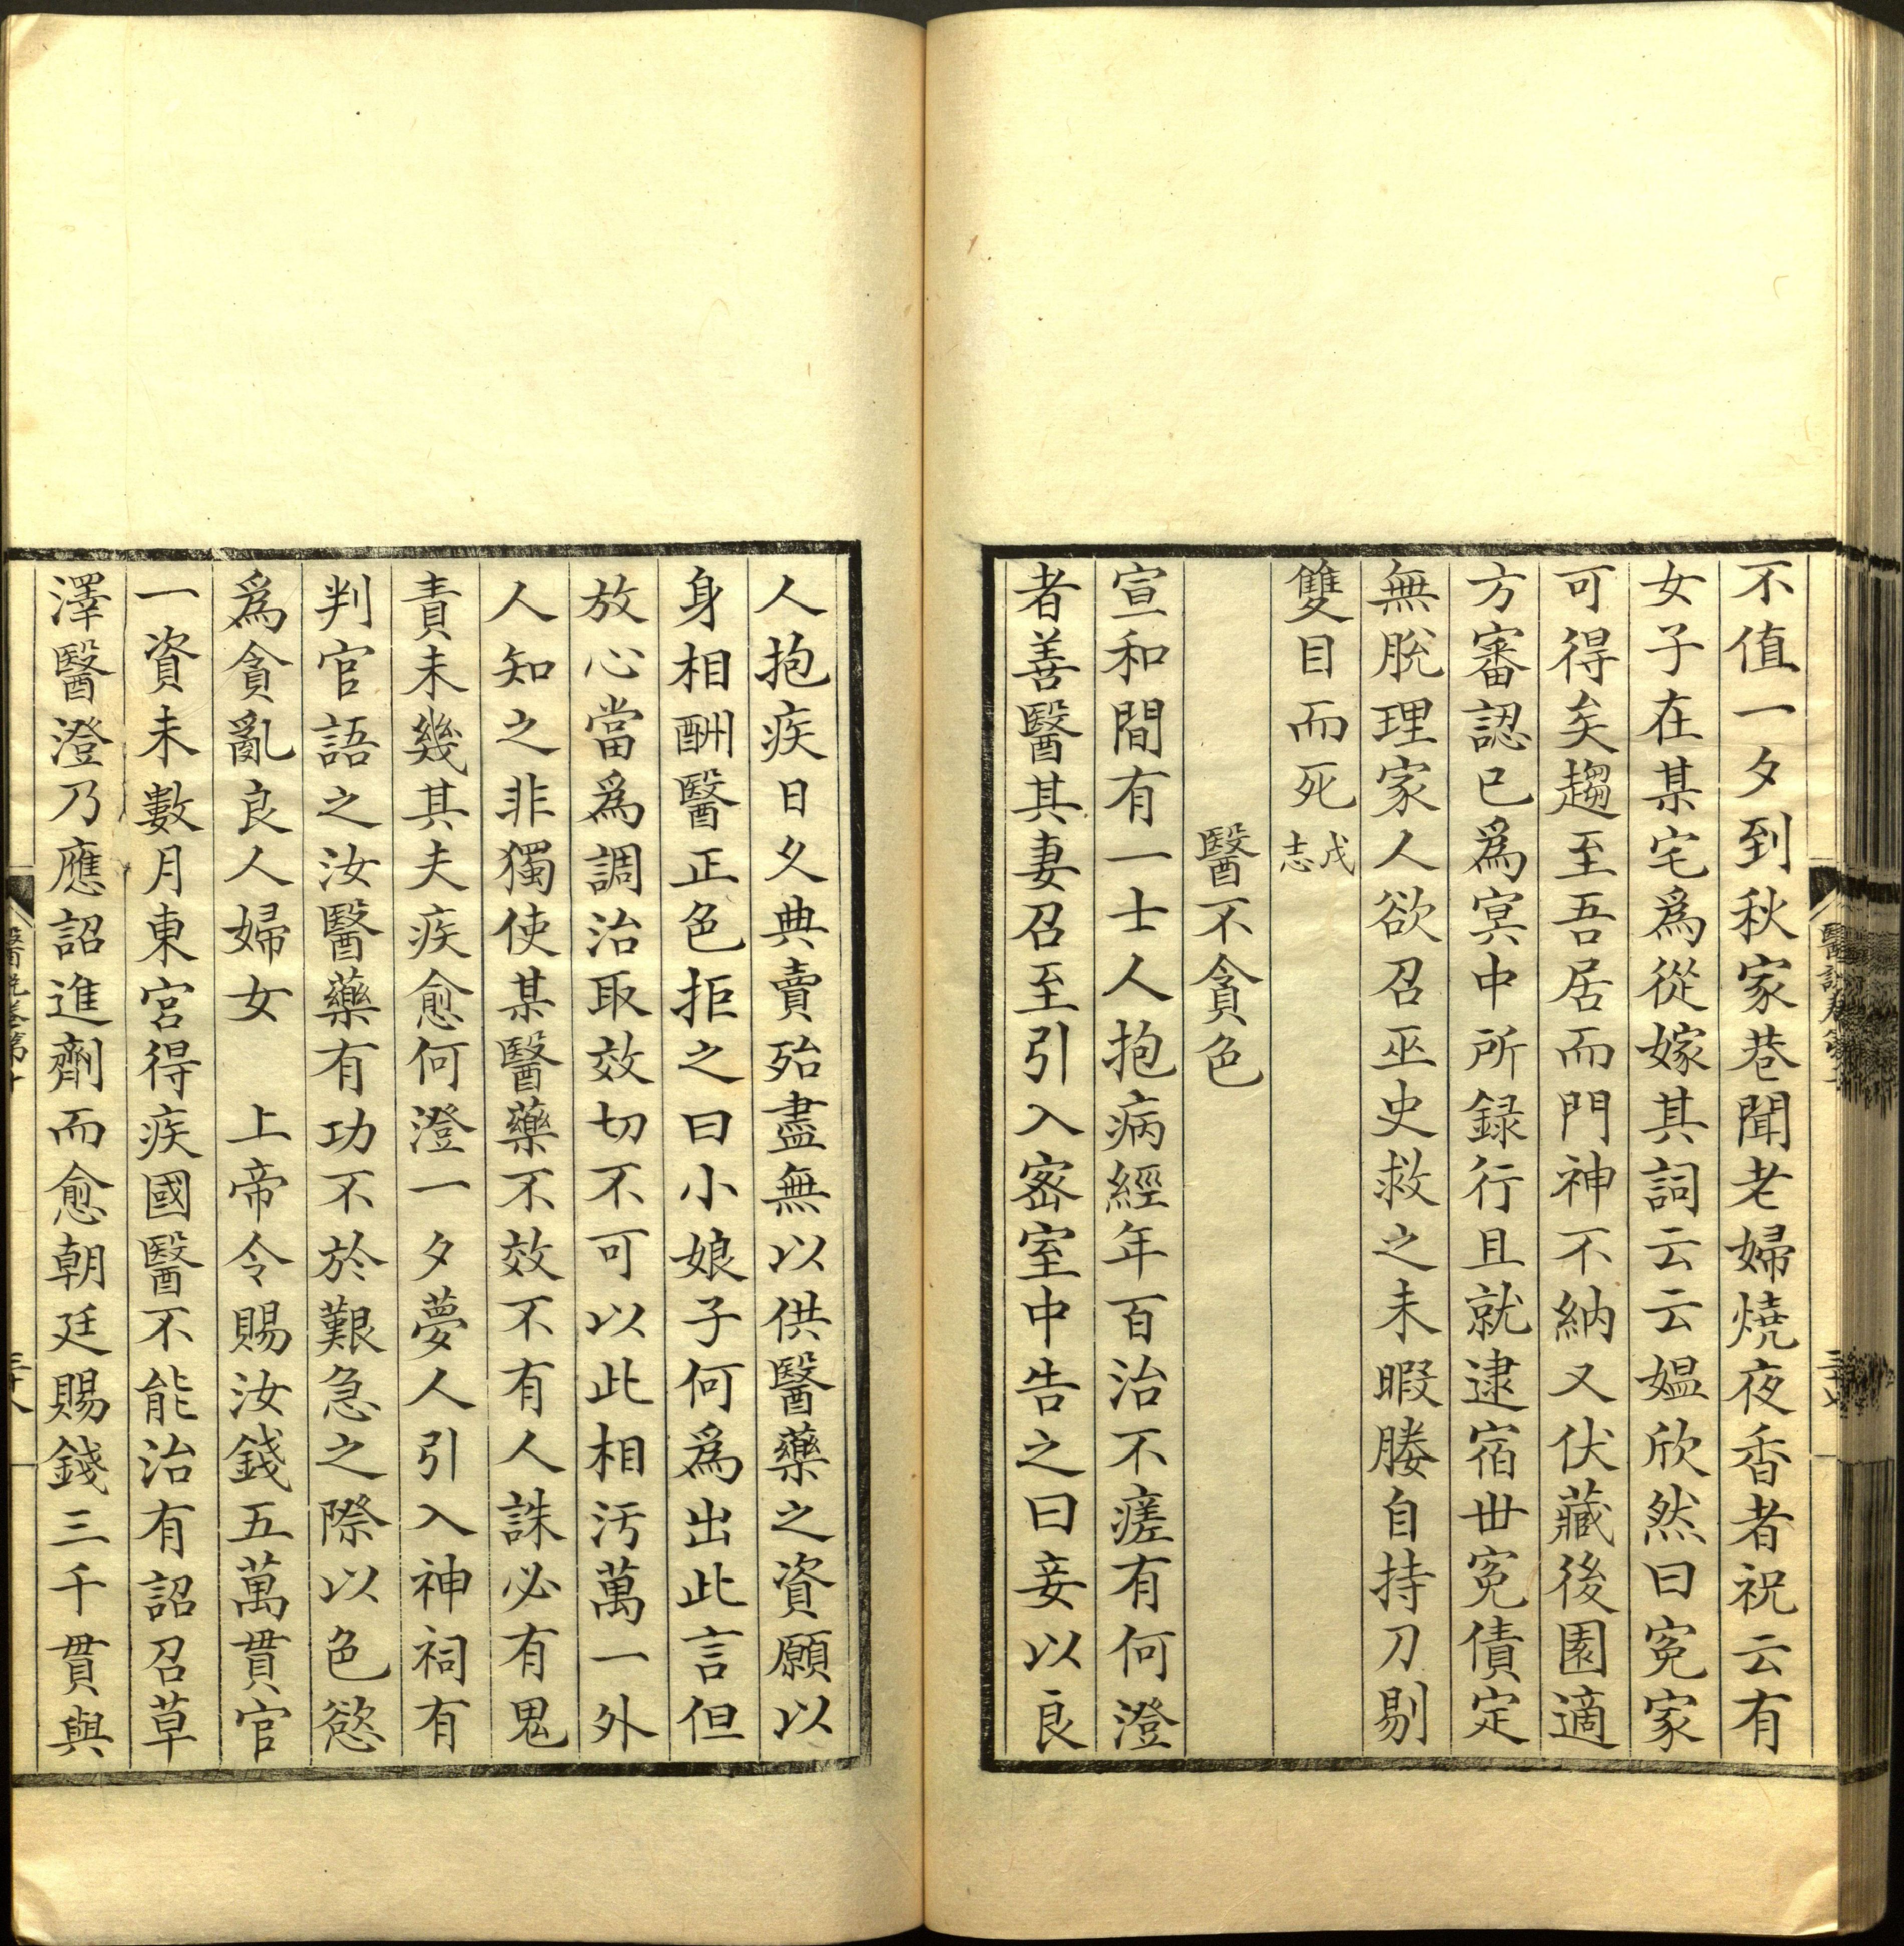 不值一夕到秋家巷聞老婦燒夜香者祝云有
女子在某宅爲從嫁其詞云云媼欣然曰冤家
可得矣趨至吾居而門神不納又伏藏後園適
方審認已爲冥中所録行且就逮宿世冤債定
無脫理家人欲召巫史救之未暇媵自持刀剔
雙目而死戊志
醫不貪色
宣和間有一士人抱病經年百治不瘥有何澄
者善醫其妻召至引入密室中告之曰妾以良
人抱疾日久典賣殆盡無以供醫藥之資願以
身相酬醫正色拒之曰小娘子何爲出此言但
放心當爲調治取效切不可以此相汚萬一外
人知之非獨使某醫藥不效不有人誅必有鬼
責未幾其夫疾愈何澄一夕夢人引入神祠有
判官語之汝醫藥有功不於艱急之際以色慾
爲貪亂良人婦女　上帝令賜汝錢五萬貫官
一資未數月東宮得疾國醫不能治有詔召草
澤醫澄乃應詔進劑而愈朝廷賜錢三千貫與
醫說卷第十
三十八